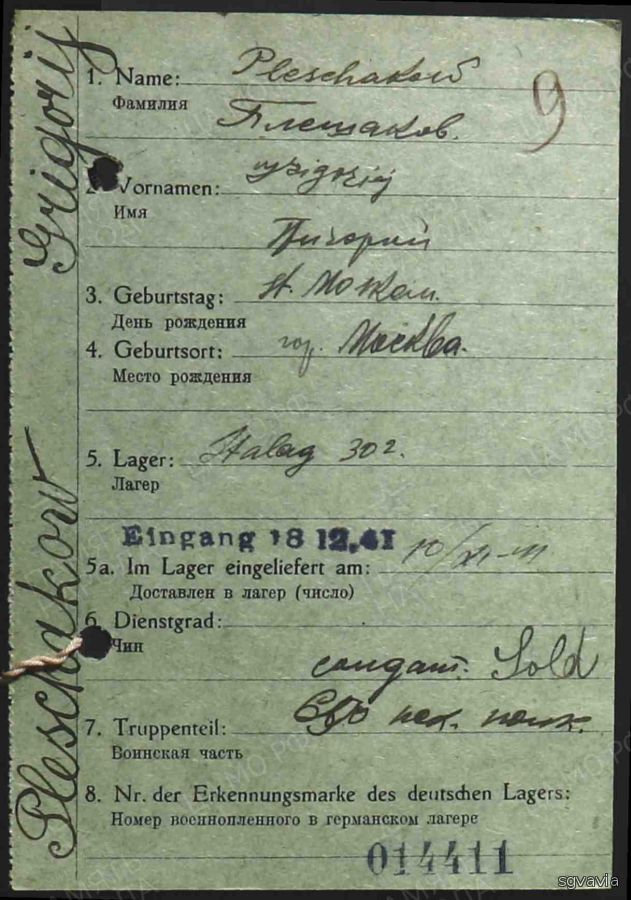 Grigorij
Pleschakow
9
1. Name: Pleschakow
Фамилия
Плещаков.
2. Vornamen: Grigorij
Имя
3. Geburtstag:
День рождения
4. Geburtsort: гор. Москва.
Место рождения
5. Lager: Stalag 302.
Лагер
Eingang 18 12.41
5a. Im Lager eingeliefert am:
Доставлен в лагер (число)
6. Dienstgrad:
Чин
солдат. Sold
7. Truppenteil: пех. полк.
Воинская часть
8. Nr. der Erkennungsmarke des deutschen Lagers:
Номер военнопленного в германском лагере
014411
sgvavia